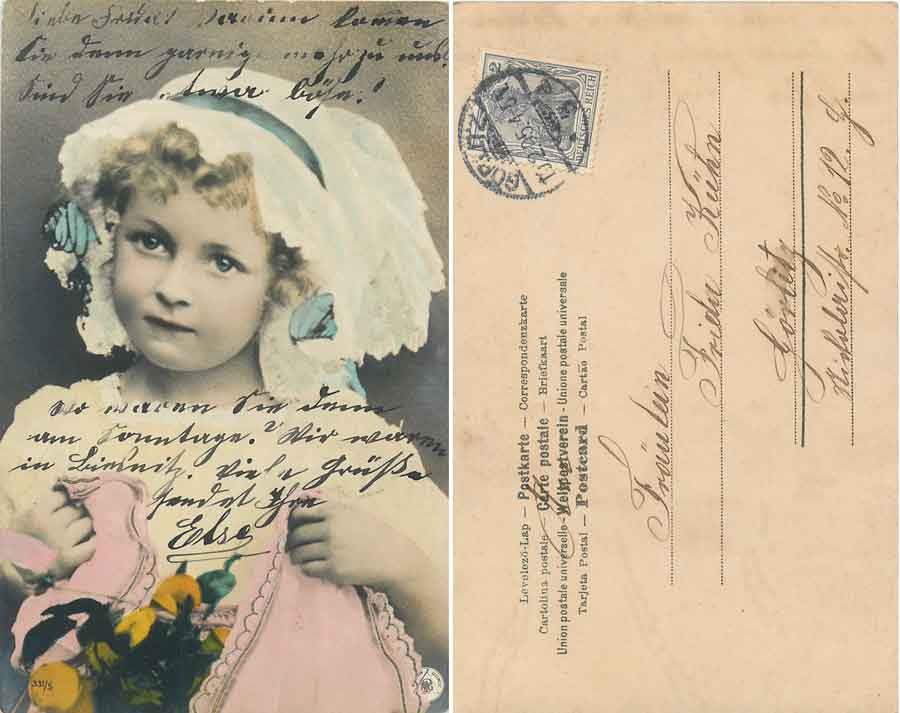 Liebe Frieda! Warum kommen
Sie denn garnig mehr zu uns?
Sind Sie etwa böse?
Wo waren Sie denn
am Sonntage? Wir waren
in Biesnitz. Viele Grüße
sendet Ihre
Else
331/5
2
DEUTSCHES REICH
GÖRLITZ
Levelező-Lap — Postkarte — Correspondenzkarte
Cartolina postale — Carte postale — Briefkaart
Union postale universelle - Weltpostverein - Unione postale universale
Tarjeta Postal — Postcard — Cartão Postal
Fräulein
Frieda Kühn
Görlitz
No 12. I.